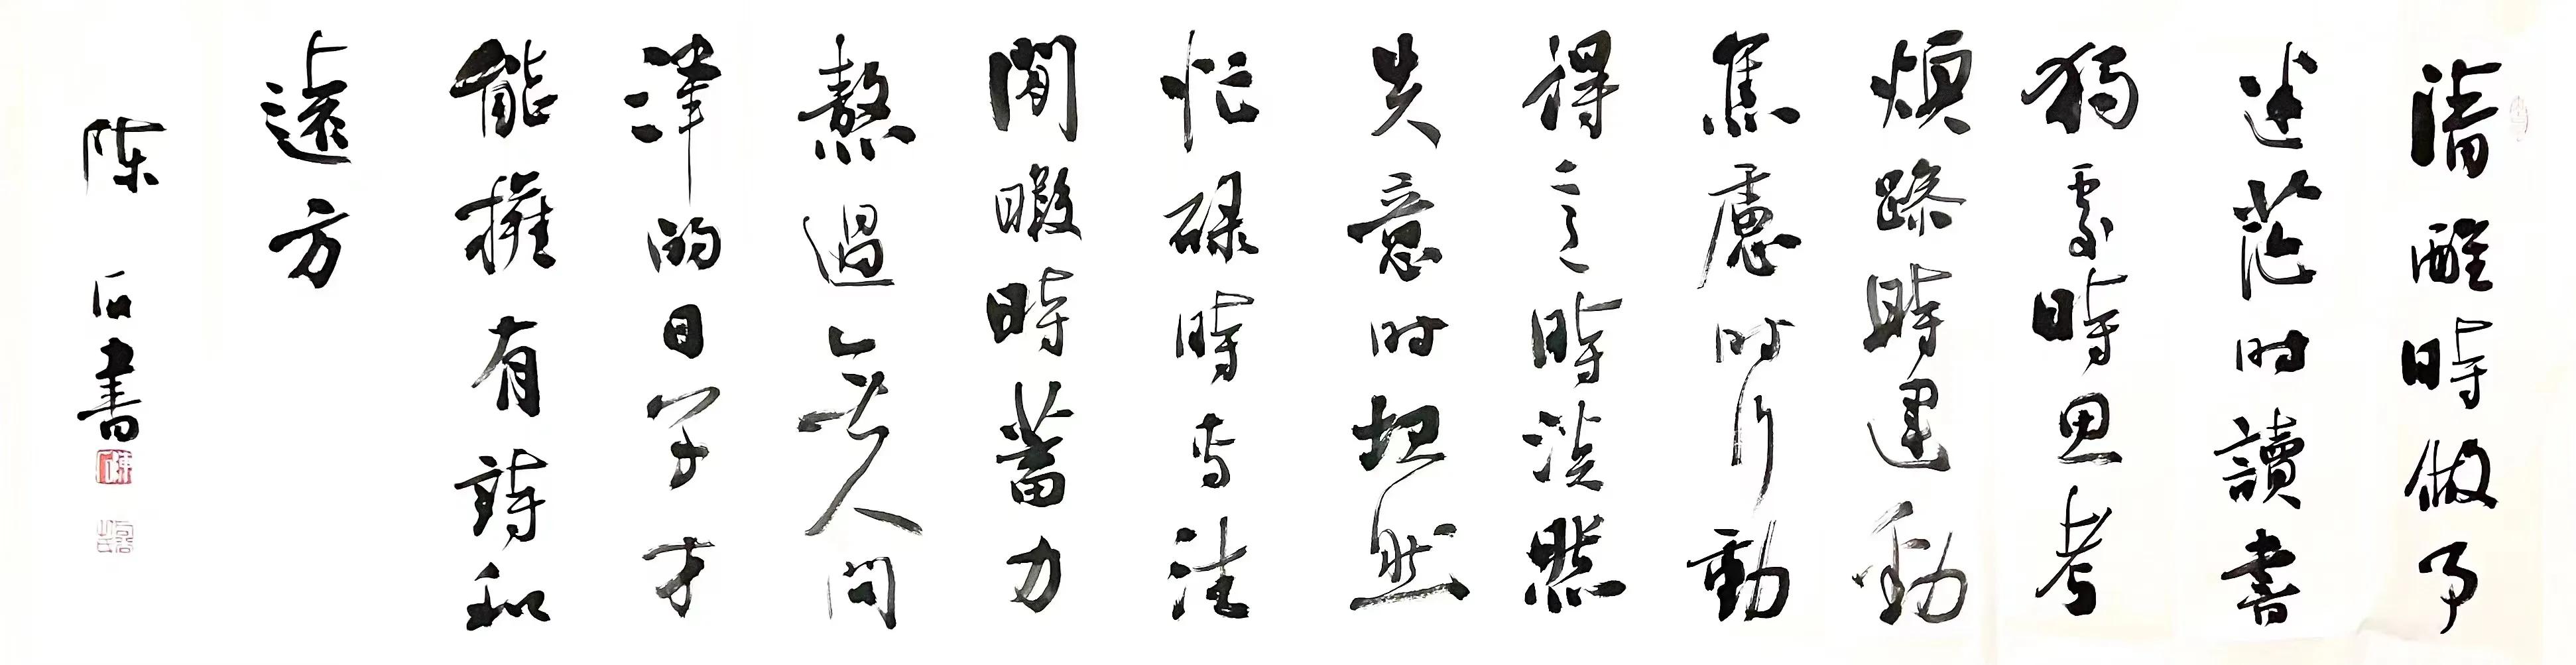 清醒時做事
迷茫时讀書
獨處時思考
煩躁時運動
焦慮时行動
得意時淡然
失意时坦然
忙碌時专注
閒暇時蓄力
熬過了無人問
津的日子才
能擁有詩和
遠方
陳石書